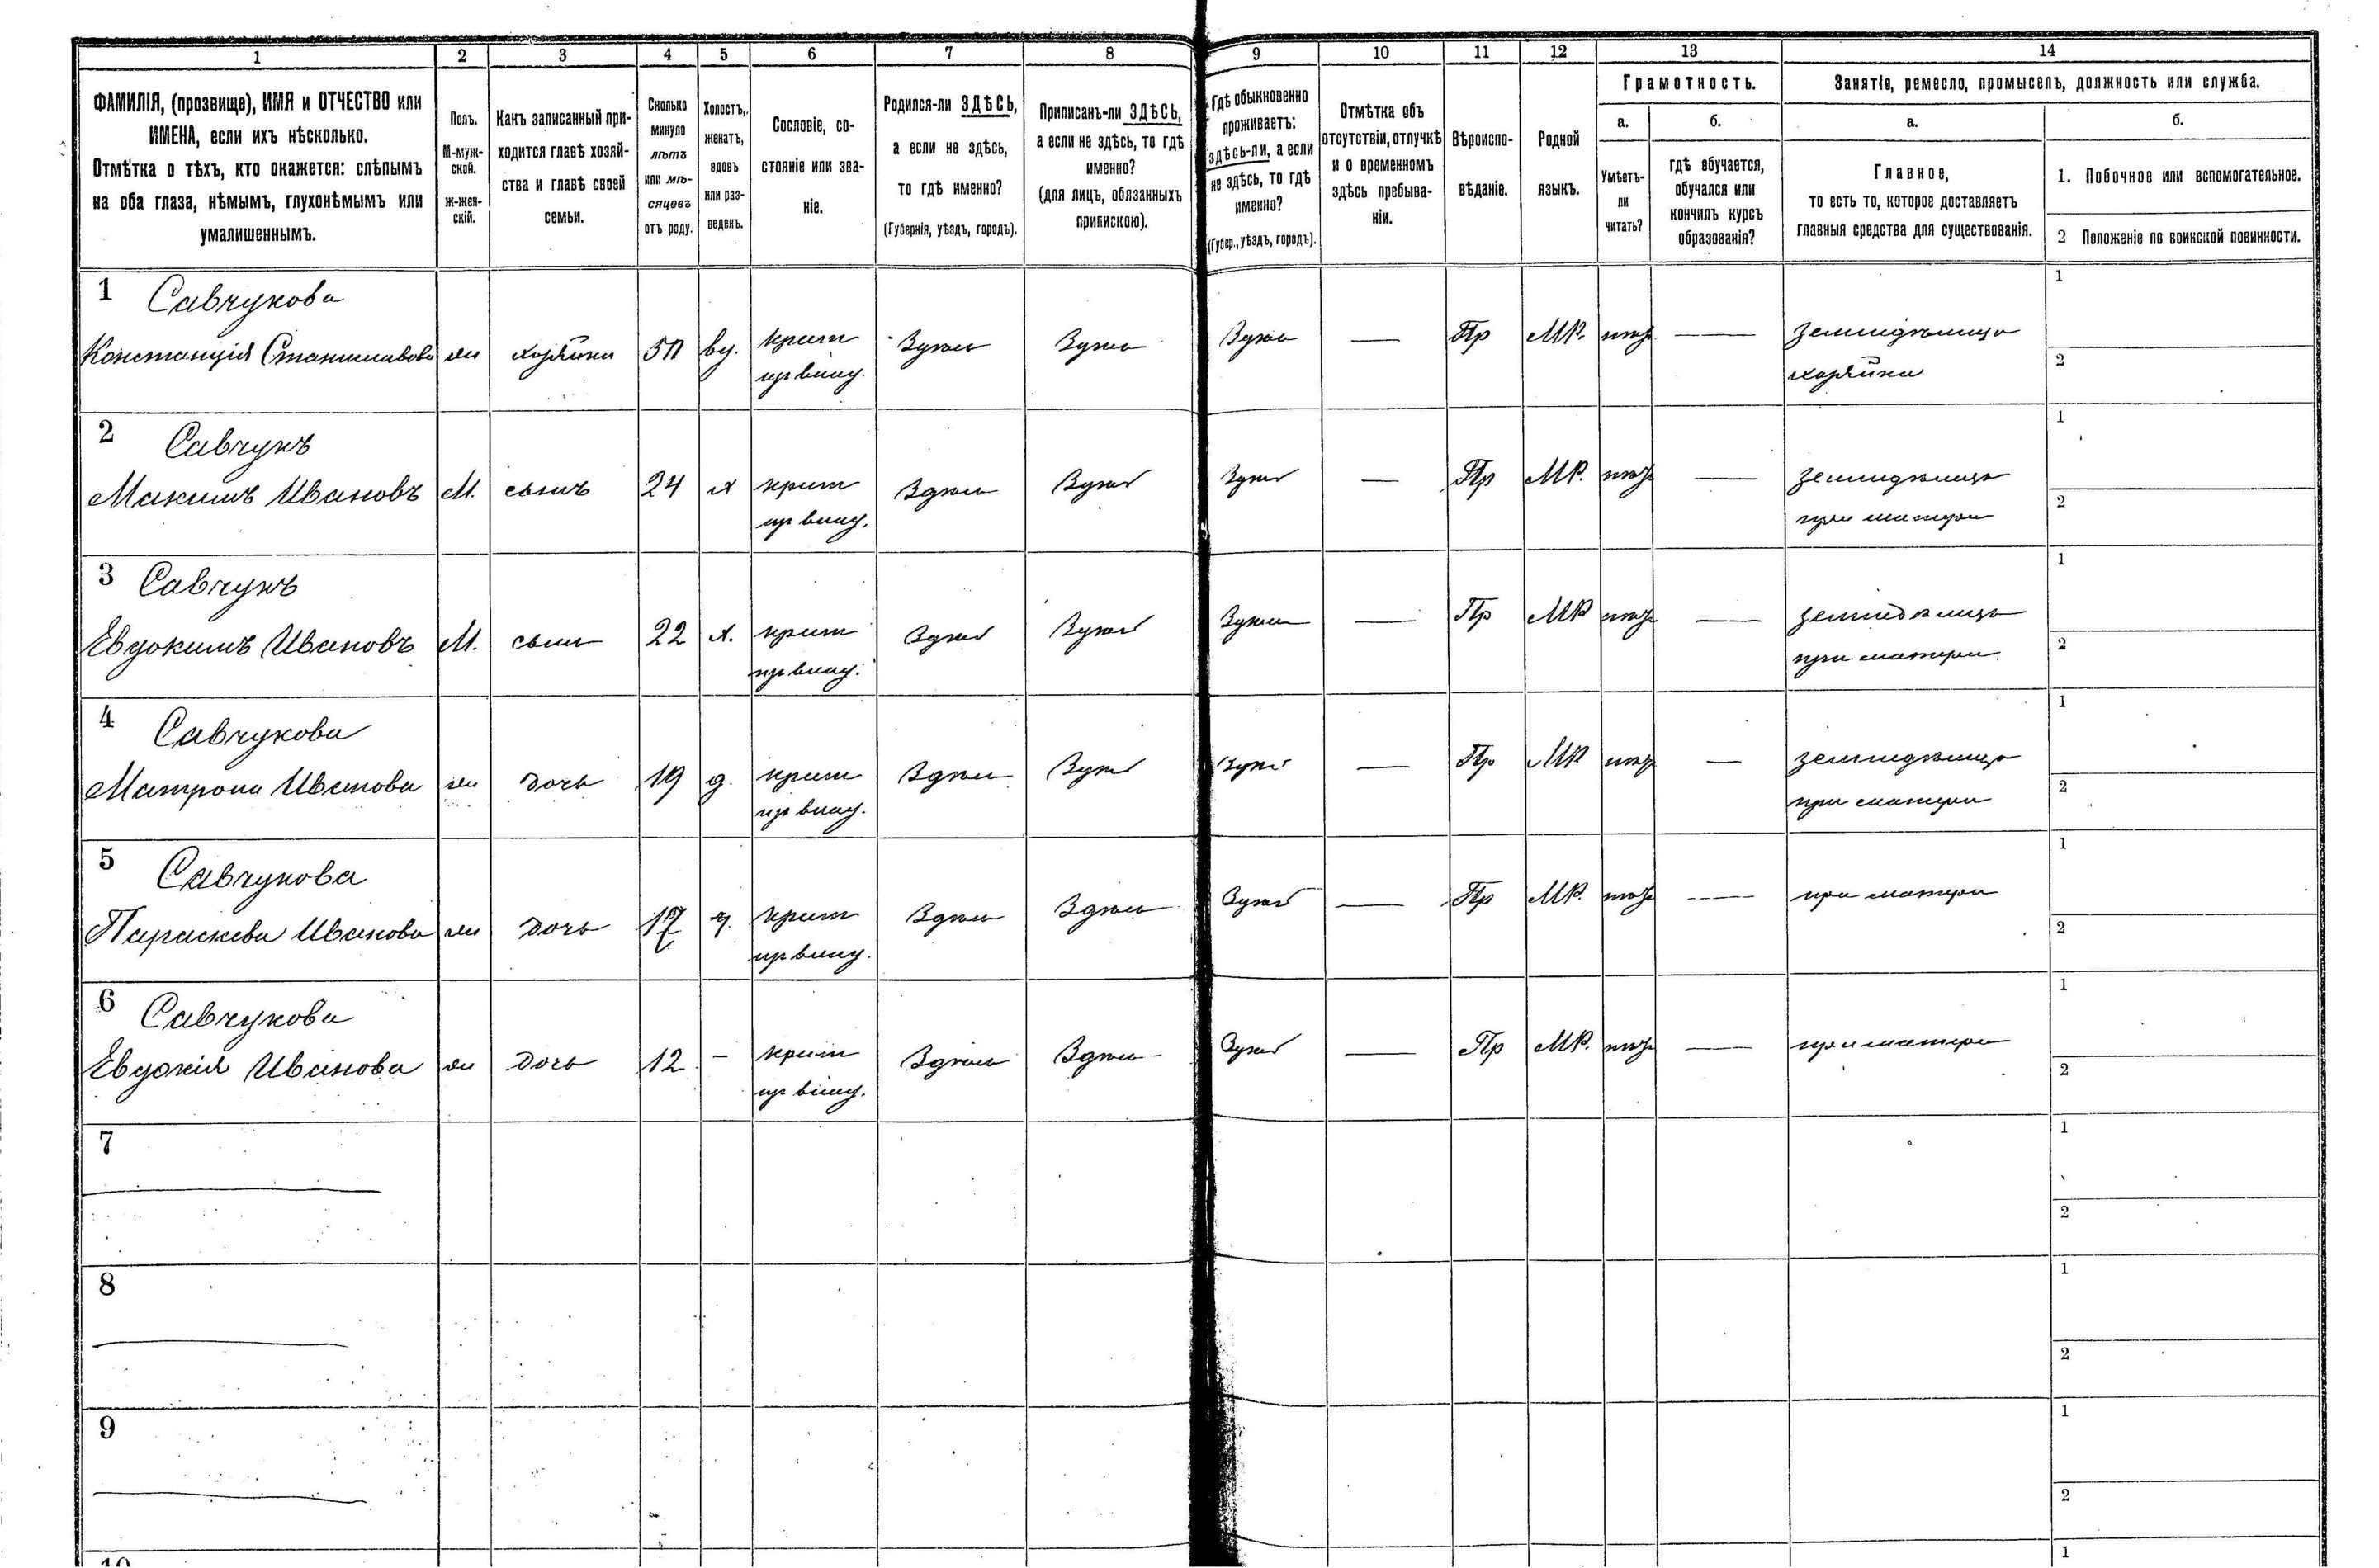 1 2 3 4 5 6 7 8 9 10 11 12 13 14
ФАМИЛІЯ, (прозвище), ИМЯ и ОТЧЕСТВО или
ИМЕНА, если ихъ нѣсколько.
Отмѣтка о тѣхъ, кто окажется: слѣпымъ
на оба глаза, нѣмымъ, глухонѣмымъ или
умалишеннымъ.
Полъ.
М-муж-
ской.
ж-жен-
скій.
Какъ записанный при-
ходится главѣ хозяй-
ства и главѣ своей
семьи.
Сколько
минуло
лѣтъ
или мѣ-
сяцевъ
отъ роду.
Холостъ,
женатъ,
вдовъ
или раз-
веденъ.
Сословіе, со-
стояніе или зва-
ніе.
Родился-ли ЗДѢСЬ,
а если не здѣсь,
то гдѣ именно?
(Губернія, уѣздъ, городъ).
Приписанъ-ли ЗДѢСЬ,
а если не здѣсь, то гдѣ
именно?
(для лицъ, обязанныхъ
припискою).
Гдѣ обыкновенно
проживаетъ:
здѣсь-ли, а если
не здѣсь, то гдѣ
именно?
(Губер., уѣздъ, городъ).
Отмѣтка объ
отсутствіи, отлучкѣ
и о временномъ
здѣсь пребыва-
ніи.
Вѣроиспо-
вѣданіе.
Родной
языкъ.
Грамотность.
а.
Умѣетъ-
ли
читать?
б.
гдѣ обучается,
обучался или
кончилъ курсъ
образованія?
Занятіе, ремесло, промыселъ, должность или служба.
а.
Главное,
то есть то, которое доставляетъ
главныя средства для существованія.
б.
1. Побочное или вспомогательное.
2 Положеніе по воинской повинности.
1 Савчукова
Констанція Станиславова хозяйка 50 ву. крест Здѣсь Здѣсь Здѣсь — Пр МР. — 
хозяйка
1
2
2 Савчукъ
Максимъ Ивановъ М. сынъ 24 х крест Здѣсь Здѣсь Здѣсь — Пр МР. —
при матери
1
2
3 Савчукъ
Евдокимъ Ивановъ М. сынъ 22 х. крест Здѣсь Здѣсь Здѣсь — Пр МР —
при матери
1
2
4 Савчукова
Матрона Иванова дочь 19 д. крест Здѣсь Здѣсь Здѣсь — Пр МР —
при матери
1
2
5 Савчукова
Параскева Иванова дочь 17 крест Здѣсь Здѣсь Здѣсь — Пр МР. — при матери
1
2
6 Савчукова
Евдокія Иванова дочь 12 – крест Здѣсь Здѣсь Здѣсь — Пр МР. — при матери
1
2
7
1
2
8
1
2
9
1
2
10
1